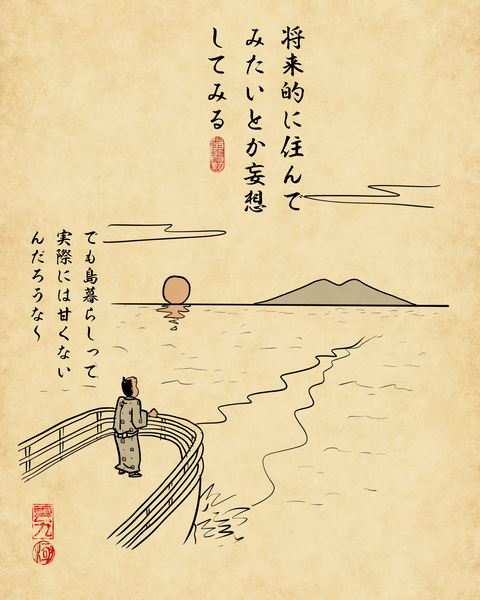 将来的に住んで
みたいとか妄想
してみる
でも島暮らしって
実際には甘くない
んだろうな〜